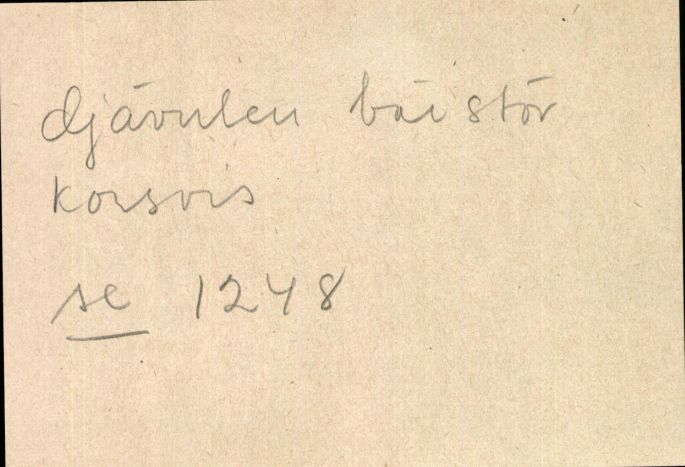 djävulen bär stör
korsvis
se 1248